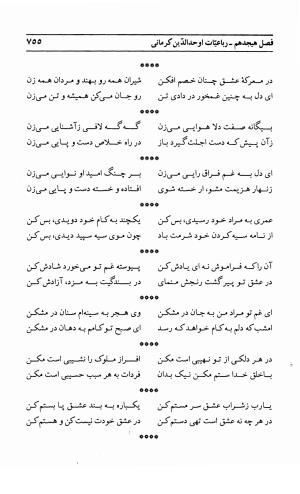 فصل هیجدهم ـ رباعیّات اوحدالدّین کرمانی
۷۵۵
****
در معرکهٔ عشق چنان خصم افکن
شیران همه رو بهند و مردان همه زن
ای دل به چنین غمخور در دادی تن
رو جان می‌کن همیشه و تن می‌زن
****
بیگانه صفت دلا هوایی می‌زن
گه گه لافی زآشنایی می‌زن
زآن پیش که دست اجلت گیرد باز
در راه خلاص دست و پایی می‌زن
****
ای دل به غم فراق رایی می‌زن
بر چنگ امید او نوایی می‌زن
زنهار هزیمت مشو، ار خسته شوی
افتاده و خسته دست و پایی می‌زن
****
عمری به مراد خود رسیدی، بس کن
یکچند به کام خود دویدی، بس کن
از نامه سیه کردن خود شرمت باد
چون موی سیه سپید دیدی، بس کن
****
آن را که فراموش نه ای یادش کن
پیوسته غم تو می‌خورد شادش کن
در عشق تو پیر گشت رنجش منمای
در بندگیت به مرد، آزادش کن
****
ای غم تو مراد من به جان در مشکن
وی هجر به سینه‌ام سنان در مشکن
امشب که دلم به کام خواهد که رسد
ای صبح تو کامم به دهان در مشکن
****
در هر دلکی از تو نهیبی است مکن
افراز ملوک را نشیبی است مکن
باخلق خدا ستم مکن نیک بدان
فردات به هر سبب حسیبی است مکن
****
یارب زشراب عشق سر مستم کن
یکباره به بند عشق پا بستم کن
در هر چه نه عشق است تهی دستم کن
در عشق خودت نیست کن و هستم کن
****